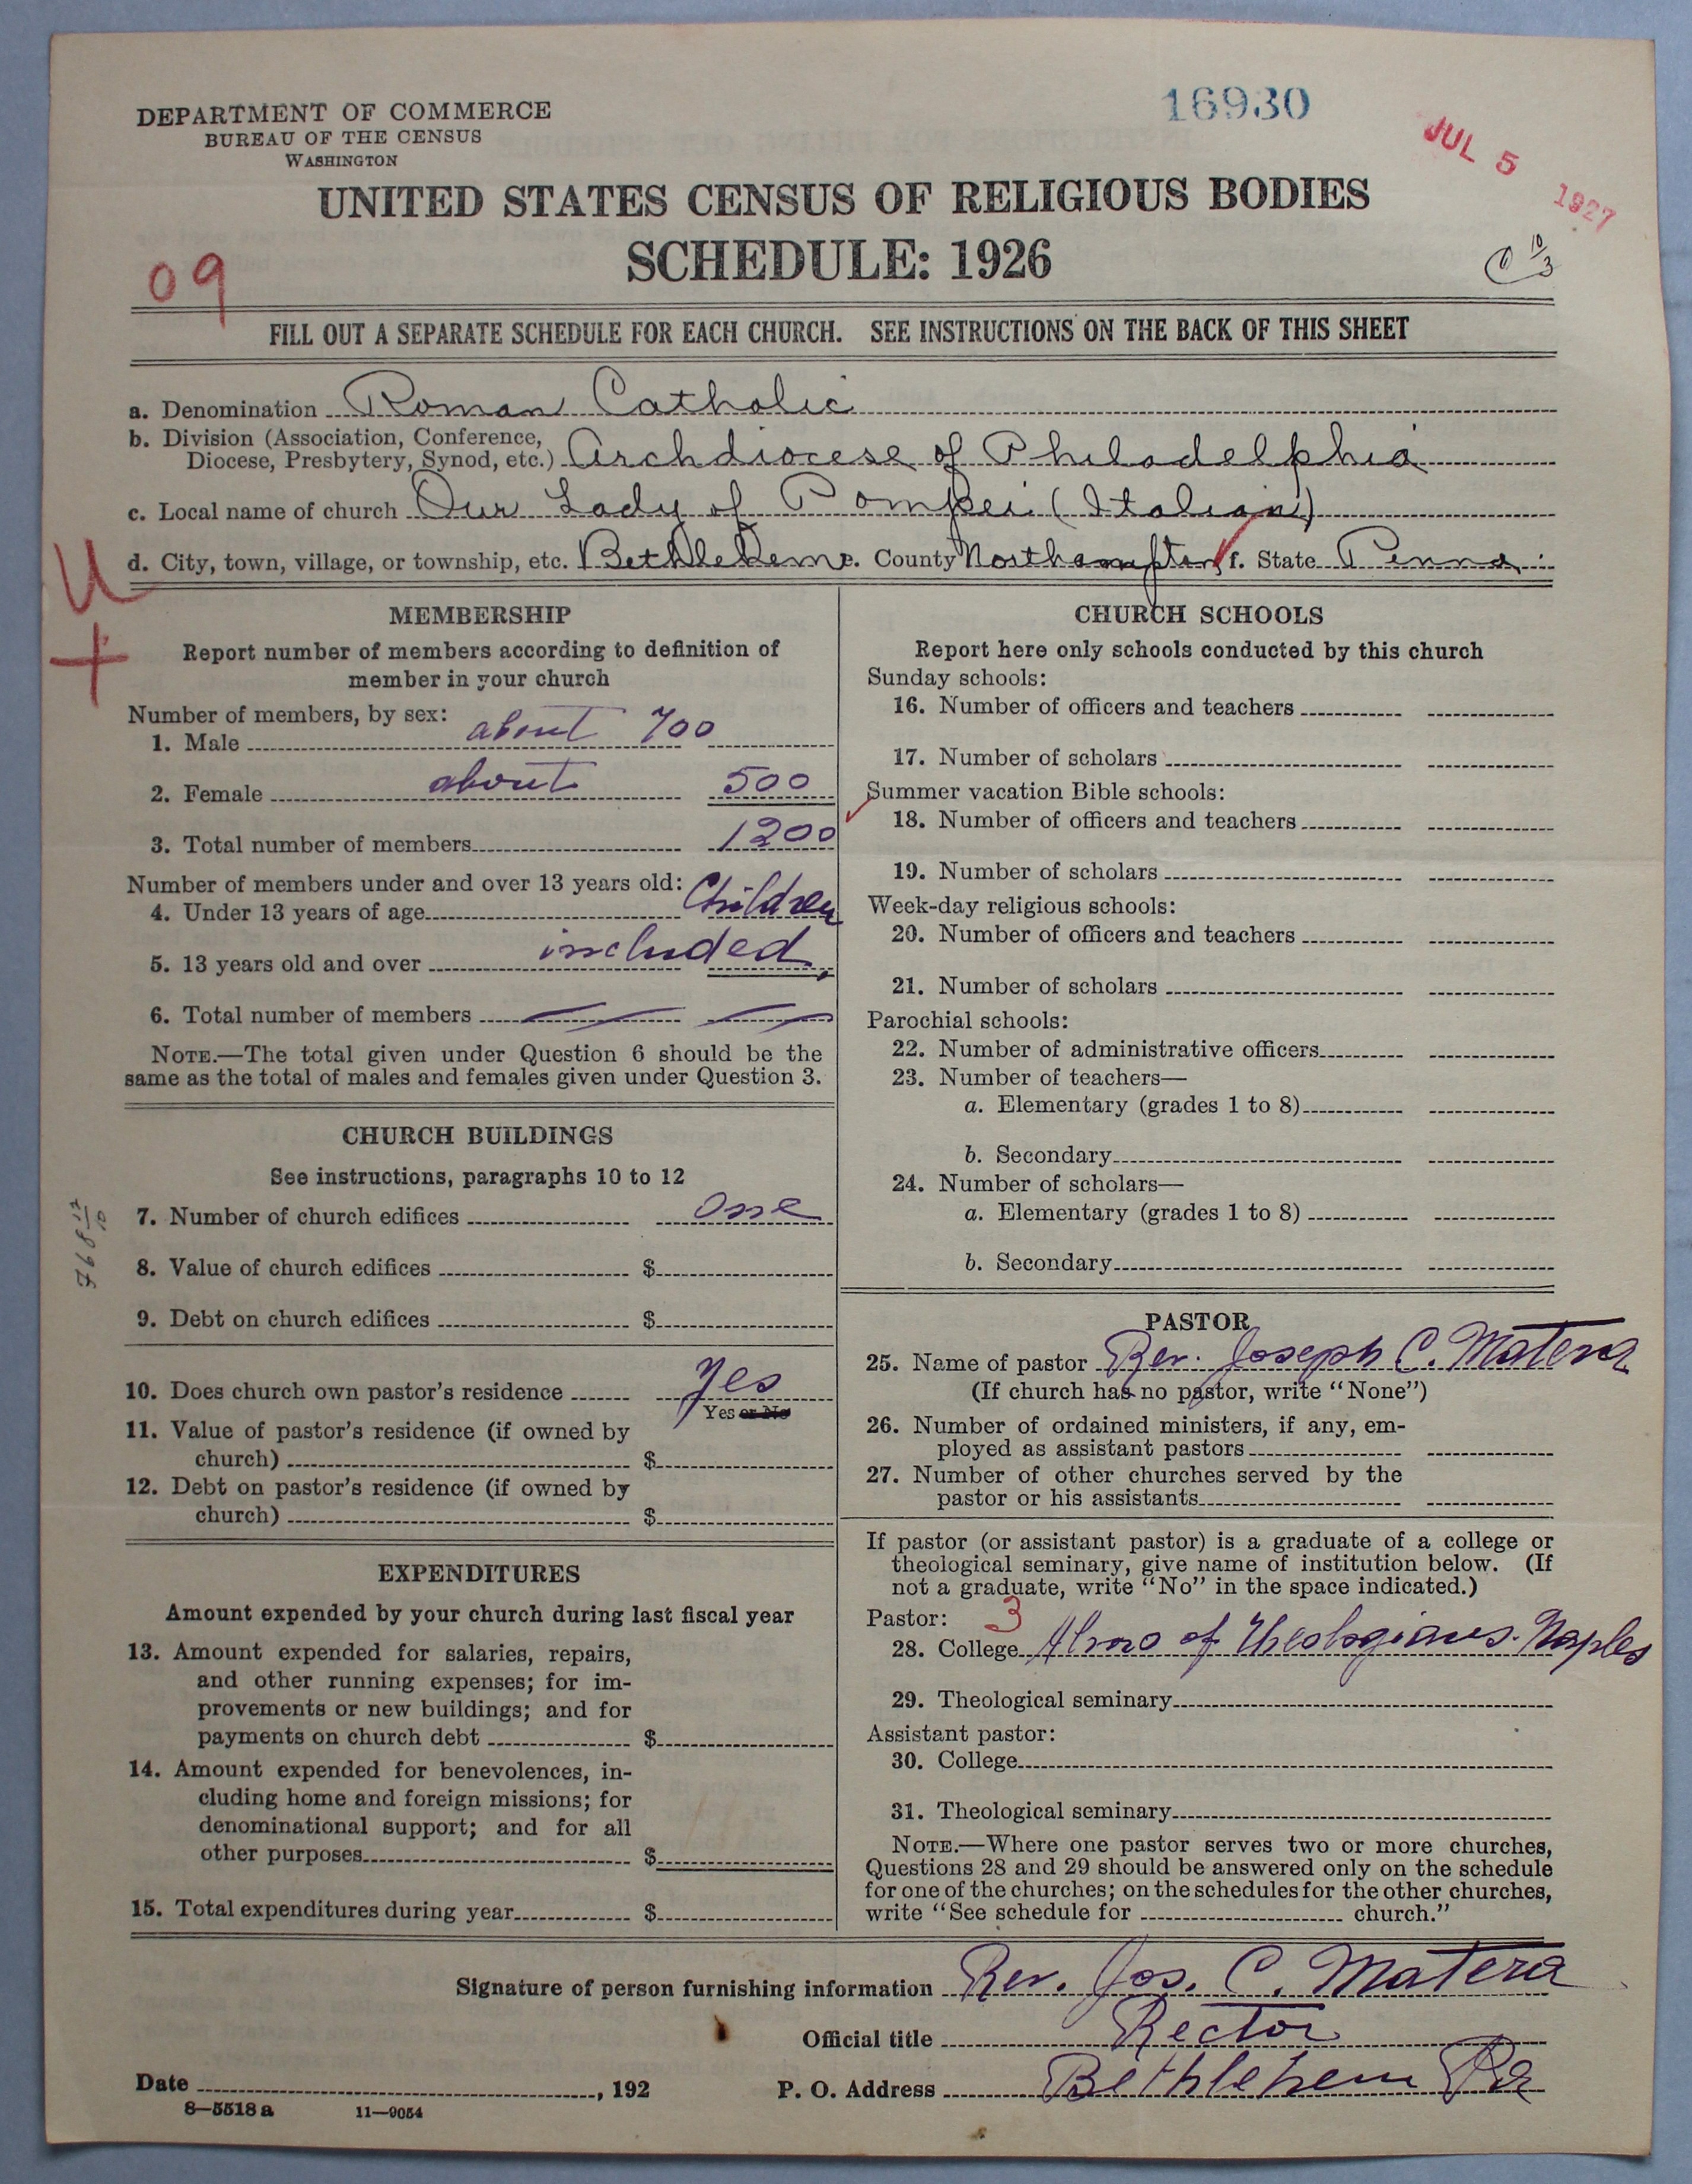 DEPARTMENT OF COMMERCE
BUREAU OF THE CENSUS
WASHINGTON
16930
JUL 5 1927
UNITED STATES CENSUS OF RELIGIOUS BODIES
SCHEDULE: 1926
09
C 10/3
FILL OUT A SEPARATE SCHEDULE FOR EACH CHURCH. SEE INSTRUCTIONS ON THE BACK OF THIS SHEET
a. Denomination Roman Catholic
b. Division (Association, Conference, Diocese, Presbytery, Synod, etc.) Archdiocese of Philadelphia
c. Local name of church Our Lady of Pompei (Italian)
d. City, town, village, or township, etc. Bethlehem e. County Northampton f. State Penna.
U
+
MEMBERSHIP
Report number of members according to definition of
member in your church
Number of members, by sex:
1. Male about 700
2. Female about 500
3. Total number of members 1200
Number of members under and over 13 years old:
4. Under 13 years of age Children
5. 13 years old and over included,
6. Total number of members
NOTE.—The total given under Question 6 should be the
same as the total of males and females given under Question 3.
CHURCH BUILDINGS
See instructions, paragraphs 10 to 12
7. Number of church edifices One
8. Value of church edifices $
9. Debt on church edifices $
10. Does church own pastor's residence Yes
Yes or No
11. Value of pastor's residence (if owned by
church) $
12. Debt on pastor's residence (if owned by
church) $
EXPENDITURES
Amount expended by your church during last fiscal year
13. Amount expended for salaries, repairs,
and other running expenses; for im-
provements or new buildings; and for
payments on church debt $
14. Amount expended for benevolences, in-
cluding home and foreign missions; for
denominational support; and for all
other purposes $
15. Total expenditures during year $
CHURCH SCHOOLS
Report here only schools conducted by this church
Sunday schools:
16. Number of officers and teachers
17. Number of scholars
Summer vacation Bible schools:
18. Number of officers and teachers
19. Number of scholars
Week-day religious schools:
20. Number of officers and teachers
21. Number of scholars
Parochial schools:
22. Number of administrative officers
23. Number of teachers—
a. Elementary (grades 1 to 8)
b. Secondary
24. Number of scholars—
a. Elementary (grades 1 to 8)
b. Secondary
PASTOR
25. Name of pastor Rev. Joseph C. Matera
(If church has no pastor, write "None")
26. Number of ordained ministers, if any, em-
ployed as assistant pastors
27. Number of other churches served by the
pastor or his assistants
If pastor (or assistant pastor) is a graduate of a college or
theological seminary, give name of institution below. (If
not a graduate, write "No" in the space indicated.)
Pastor: 3
28. College of Theologians. Naples
29. Theological seminary
Assistant pastor:
30. College
31. Theological seminary
NOTE.—Where one pastor serves two or more churches,
Questions 28 and 29 should be answered only on the schedule
for one of the churches; on the schedules for the other churches,
write "See schedule for church."
Signature of person furnishing information Rev. Jos. C. Matera
Official title Rector
Date , 192 P. O. Address Bethlehem Pa
8—5518 a 11—9054